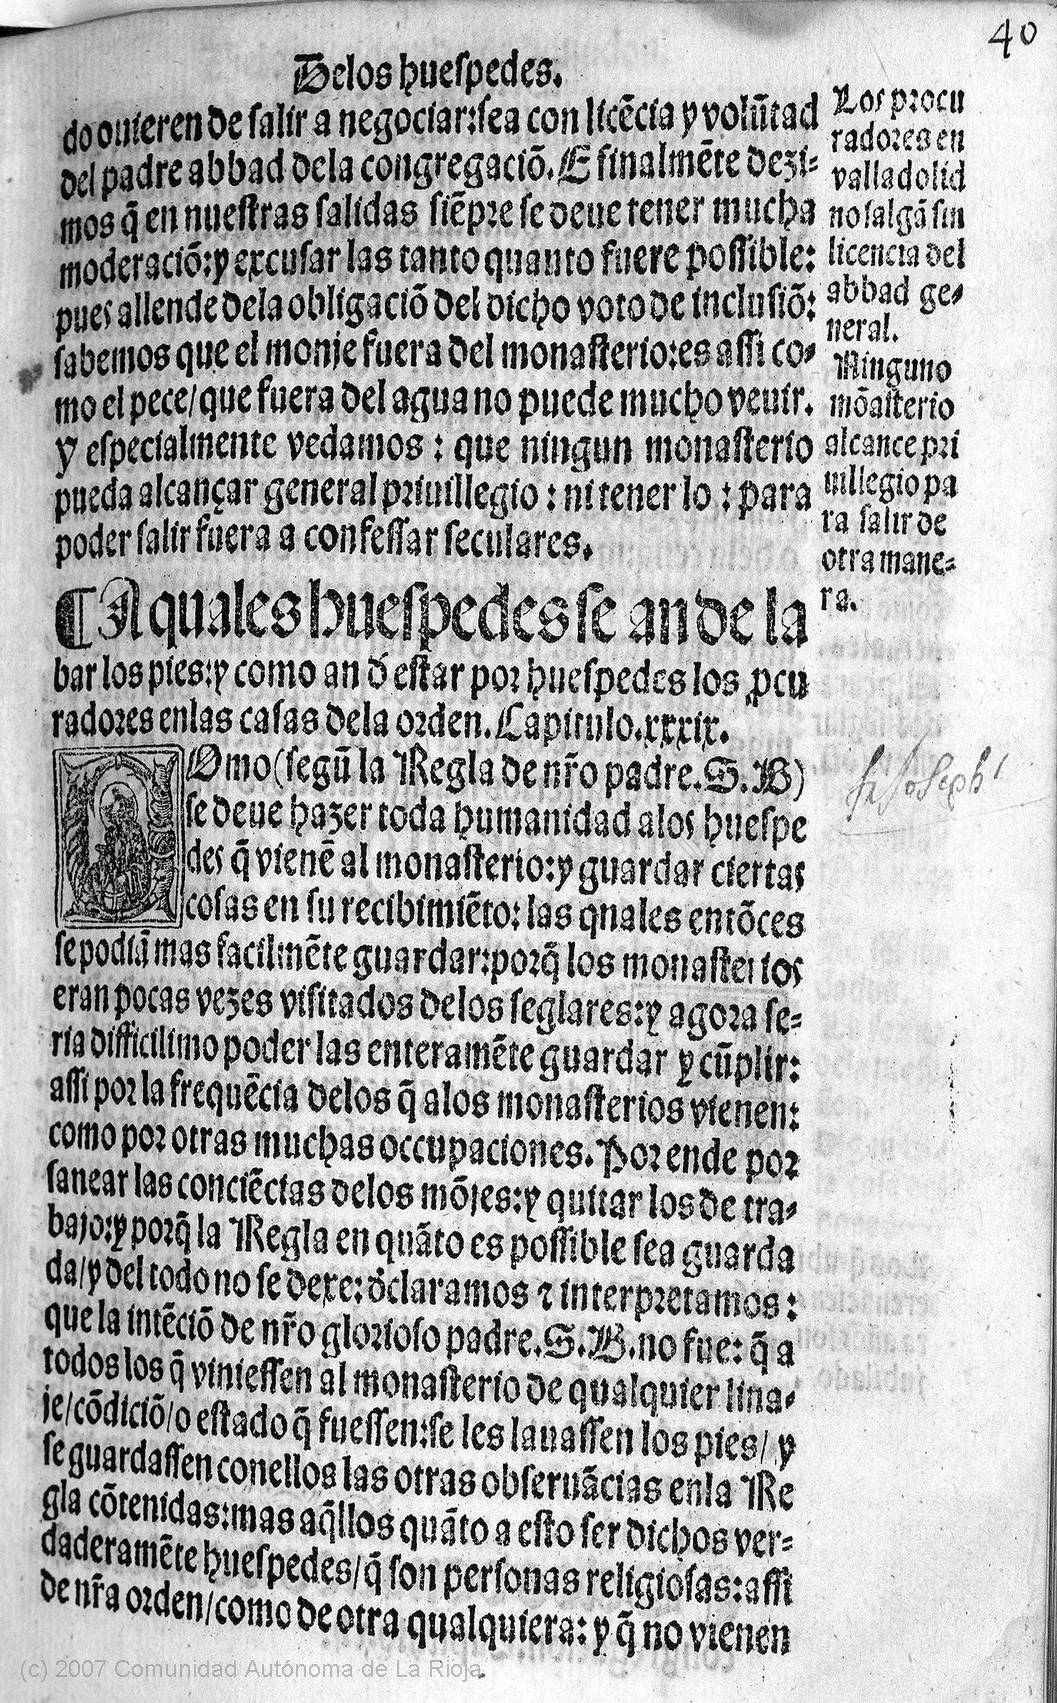 40
Delos huespedes.
do ouieren de salir a negociar:sea con licẽcia y volũtad
del padre abbad dela congregaciõ. E finalmẽte dezi-
mos q̃ en nuestras salidas siẽpre se deue tener mucha
moderaciõ:y excusar las tanto quanto fuere possible:
pues allende dela obligaciõ del dicho voto de inclusiõ:
sabemos que el monje fuera del monasterio:es assi co-
mo el pece/que fuera del agua no puede mucho veuir.
Y especialmente vedamos : que ningun monasterio
pueda alcançar general priuillegio : ni tener lo : para
poder salir fuera a confessar seculares.
Los procu
radores en
valladolid
no salgã sin
licencia del
abbad ge-
neral.
Ninguno
mõasterio
alcance pri
uillegio pa
ra salir de
otra mane-
ra.
¶ A quales huespedes se an de la
bar los pies:y como an d̃ estar por huespedes los ꝓcu
radores enlas casas dela orden. Capitulo.xxxix.
fr Joseph
COmo (segũ la Regla de nr̃o padre.S.B)
se deue hazer toda humanidad alos huespe
des q̃ vienẽ al monasterio:y guardar ciertas
cosas en su recibimiẽto: las quales entõces
se podiã mas facilmẽte guardar:porq̃ los monasterios
eran pocas vezes visitados delos seglares:y agora se-
ria difficilimo poder las enteramẽte guardar y cũplir:
assi por la frequẽcia delos q̃ alos monasterios vienen:
como por otras muchas occupaciones. Por ende por
sanear las conciẽcias delos mõjes:y quitar los de tra-
bajo:y porq̃ la Regla en quãto es possible sea guarda
da/y del todo no se dexe: d̃claramos ⁊ interpretamos :
que la intẽciõ de nr̃o glorioso padre.S.B.no fue: q̃ a
todos los q̃ viniessen al monasterio de qualquier lina-
je/cõdiciõ/o estado q̃ fuessen:se les lauassen los pies/ y
se guardassen conellos las otras obseruãcias enla Re
gla cõtenidas:mas aq̃llos quãto a esto ser dichos ver-
daderamẽte huespedes/q̃ son personas religiosas:assi
de nr̃a orden/como de otra qualquiera: y q̃ no vienen
(c) 2007 Comunidad Autónoma de La Rioja